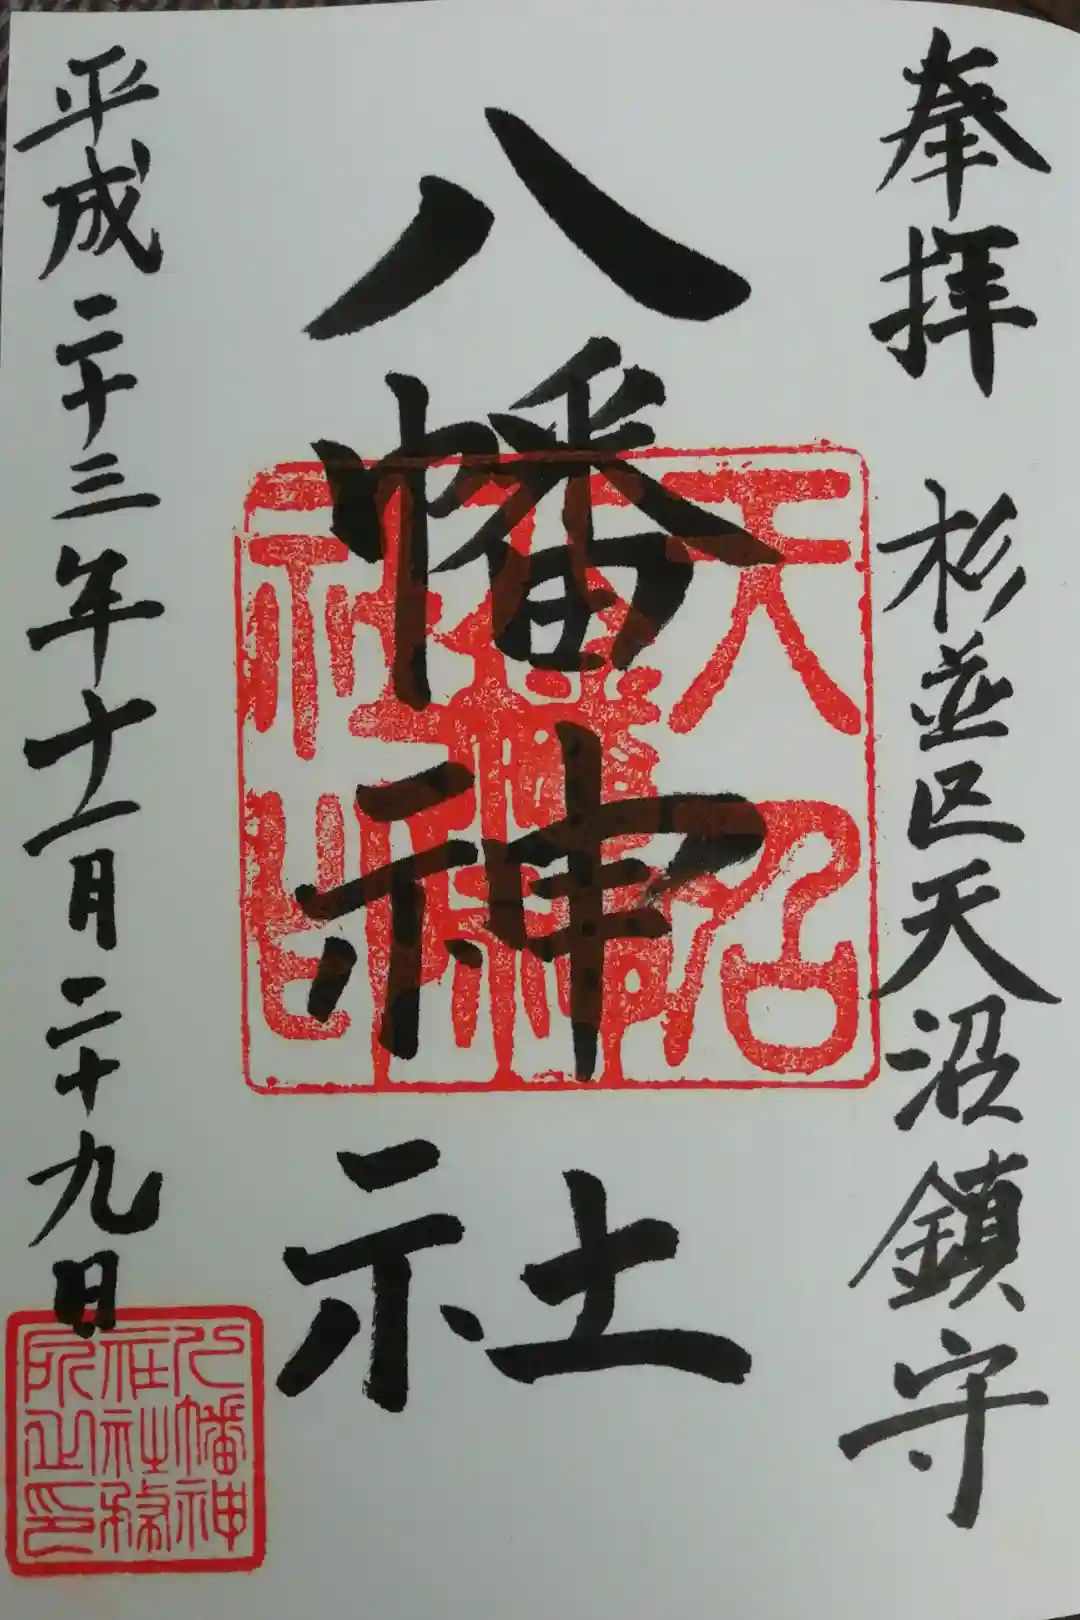 奉拝 杉並区天沼鎮守
八幡神社
平成二十三年十一月二十九日
天沼
八幡神
社印
八幡神
社社務
所之印